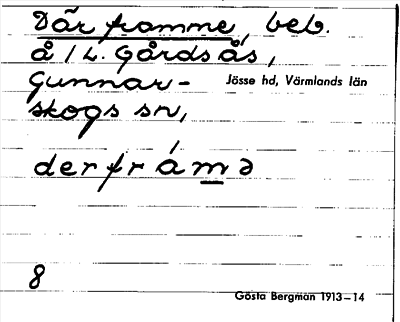 Där framme, beb.
å / L. Gårdsås,
Gunnar-
Jösse hd, Värmlands län
skogs sn,
derfrámə
8
Gösta Bergman 1913–14